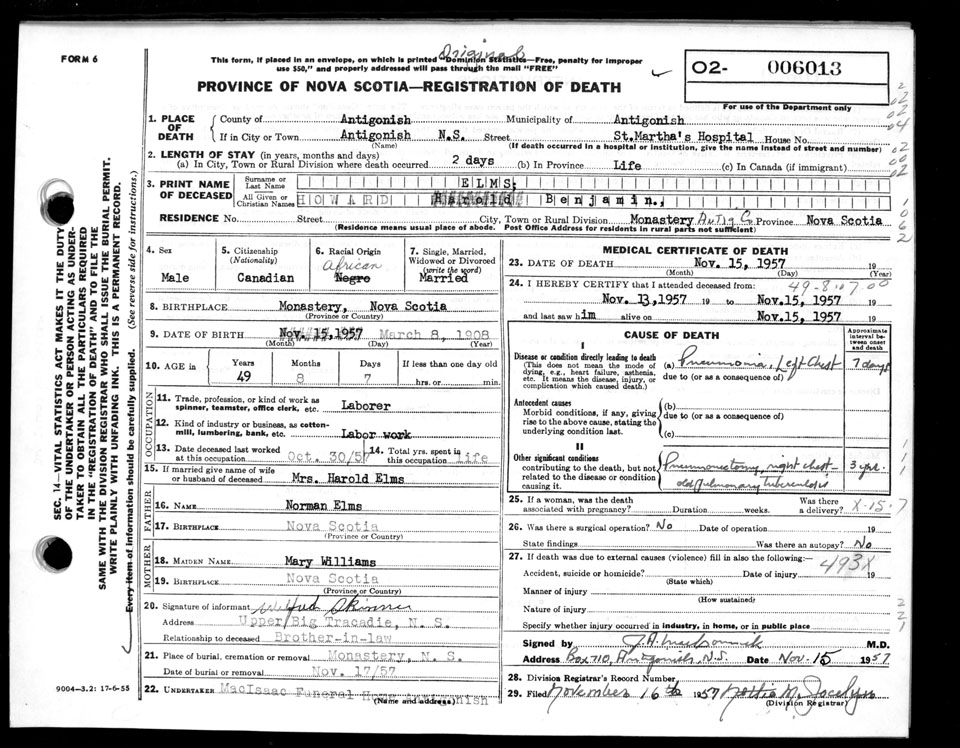 FORM 6
Original
This form, if placed in an envelope, on which is printed "Dominion Statistics—Free, penalty for improper
use $50," and properly addressed will pass through the mail "FREE"
PROVINCE OF NOVA SCOTIA—REGISTRATION OF DEATH
02- 006013
For use of the Department only
1. PLACE OF DEATH
County of Antigonish Municipality of Antigonish
If in City or Town Antigonish N.S. Street St.Martha's Hospital House No.
(Name) (If death occurred in a hospital or institution, give the name instead of street and number)
2. LENGTH OF STAY (in years, months and days)
(a) In City, Town or Rural Division where death occurred 2 days (b) In Province Life (c) In Canada (if immigrant)
3. PRINT NAME OF DECEASED
Surname or Last Name ELMS;
All Given or Christian Names HOWARD Harold Benjamin.,
RESIDENCE No. Street City, Town or Rural Division Monastery Antig Co Province Nova Scotia
(Residence means usual place of abode. Post Office Address for residents in rural parts not sufficient)
4. Sex
Male
5. Citizenship
(Nationality)
Canadian
6. Racial Origin
African
Negro
7. Single, Married, Widowed or Divorced
(write the word)
Married
8. BIRTHPLACE Monastery, Nova Scotia
(Province or Country)
9. DATE OF BIRTH Nov. 15, 1957 March 8, 1908
(Month) (Day) (Year)
10. AGE in
Years Months Days If less than one day old
49 8 7 hrs. or min.
OCCUPATION
11. Trade, profession, or kind of work as
spinner, teamster, office clerk, etc. Laborer
12. Kind of industry or business, as cotton-
mill, lumbering, bank, etc. Labor work
13. Date deceased last worked at this occupation Oct. 30/57
14. Total yrs. spent in this occupation life
15. If married give name of wife
or husband of deceased Mrs. Harold Elms
FATHER
16. Name Norman Elms
17. Birthplace Nova Scotia
(Province or Country)
MOTHER
18. Maiden Name Mary Williams
19. Birthplace Nova Scotia
(Province or Country)
20. Signature of informant Wilfred Skinner
Address Upper Big Tracadie, N. S.
Relationship to deceased Brother-in-law
21. Place of burial, cremation or removal Monastery, N. S.
Date of burial or removal Nov. 17/57
22. UNDERTAKER MacIsaac Funeral Home Antigonish
(Name and Address)
MEDICAL CERTIFICATE OF DEATH
23. DATE OF DEATH Nov. 15, 1957 19
(Month) (Day) (Year)
24. I HEREBY CERTIFY that I attended deceased from: 49-8-07.00
Nov. 13,1957 19 to Nov.15, 1957 19
and last saw him alive on Nov.15, 1957 19
CAUSE OF DEATH
Approximate interval between onset and death
I
Disease or condition directly leading to death
(This does not mean the mode of dying, e.g., heart failure, asthenia, etc. It means the disease, injury, or complication which caused death.)
(a) Pneumonia, Left Chest 7 days
due to (or as a consequence of)
Antecedent causes
Morbid conditions, if any, giving rise to the above cause, stating the underlying condition last.
(b)
due to (or as a consequence of)
(c)
II
Other significant conditions
contributing to the death, but not related to the disease or condition causing it.
Pneumonectomy, right chest— 3 yrs.
old pulmonary tuberculosis
25. If a woman, was the death Was there
associated with pregnancy? Duration weeks. a delivery? X-15-7
26. Was there a surgical operation? No Date of operation 19
State findings Was there an autopsy? No
27. If death was due to external causes (violence) fill in also the following:— 493X
Accident, suicide or homicide? Date of injury 19
(State which)
Manner of injury
(How sustained)
Nature of injury
Specify whether injury occurred in industry, in home, or in public place
Signed by M.D.
Address Box 710, Antigonish, N.S. Date Nov-15 1957
28. Division Registrar's Record Number
29. Filed November 16th 1957 Nettie M. Jocelyn
(Division Registrar)
SEC. 14—VITAL STATISTICS ACT MAKES IT THE DUTY
OF THE UNDERTAKER OR PERSON ACTING AS UNDER-
TAKER TO OBTAIN ALL THE PARTICULARS REQUIRED
IN THE "REGISTRATION OF DEATH" AND TO FILE THE
SAME WITH THE DIVISION REGISTRAR WHO SHALL ISSUE THE BURIAL PERMIT.
WRITE PLAINLY WITH UNFADING INK. THIS IS A PERMANENT RECORD.
Every item of information should be carefully supplied. (See reverse side for instructions.)
9004-3.2: 17-6-55